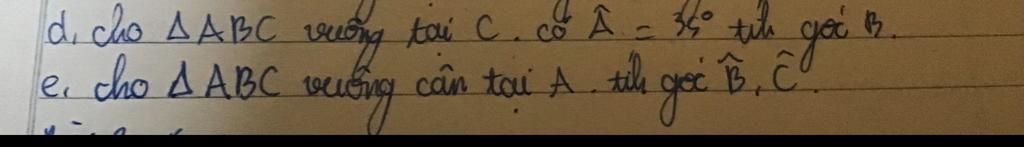 d, cho ΔABC vuông tại C. có Â = 35° tính góc B.
e, cho ΔABC vuông cân tại A. tính góc B̂, Ĉ.